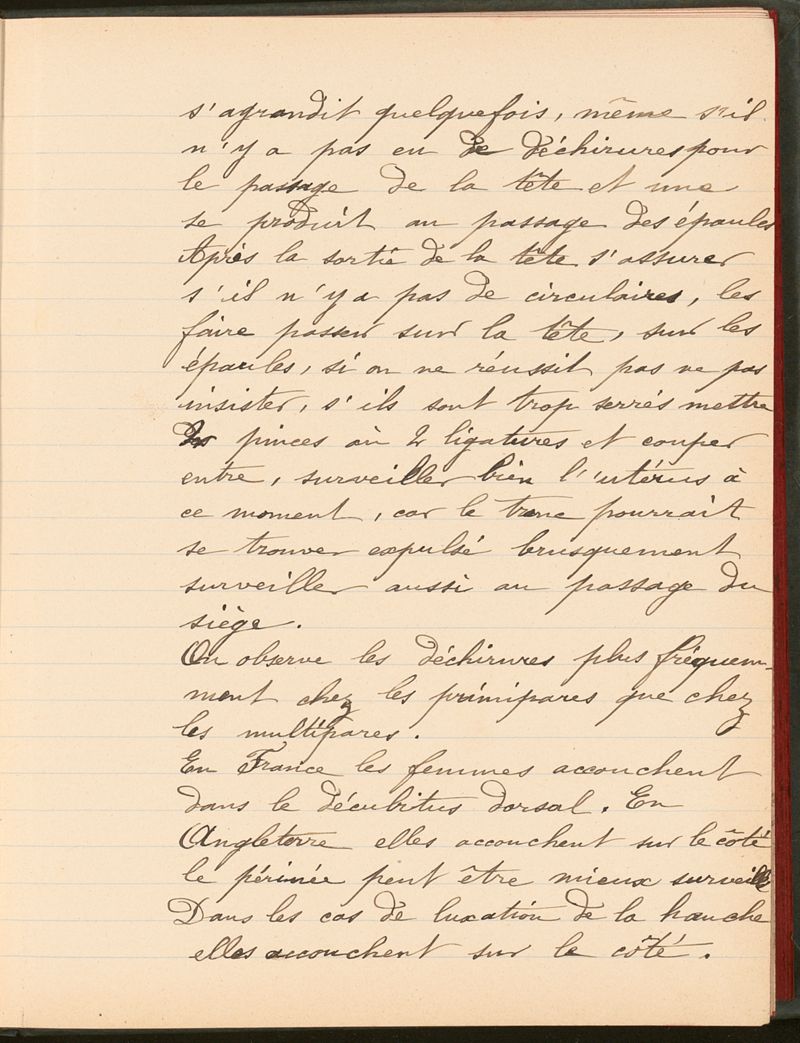 s'agrandit quelquefois, même s'il
n'y a pas eu de déchirures pour
le passage de la tête et une
se produit au passage des épaules
Après la sortie de la tête s'assurer
s'il n'y a pas de circulaires, les
faire passer sur la tête, sur les
épaules, si on ne réussit pas ne pas
insister, s'ils sont trop serrés mettre
2 pinces où 2 ligatures et couper
entre, surveiller bien l'utérus à
ce moment, car le tronc pourrait
se trouver expulsé brusquement
surveiller aussi au passage du
siège.
On observe les déchirures plus fréquem-
ment chez les primipares que chez
les multipares.
En France les femmes accouchent
dans le décubitus dorsal. En
Angleterre elles accouchent sur le côté
le périnée peut être mieux surveillé
Dans les cas de luxation de la hanche
elles accouchent sur le côté.